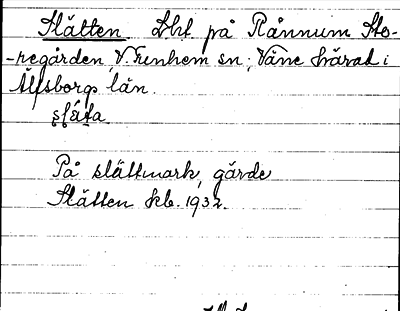 Slätten. Lht. på Rånnum Sto-
-regården, V. Tunhem sn; Väne härad i
Älfsborgs län.
slä́ta
På slättmark, gärde
Slätten kb. 1932.